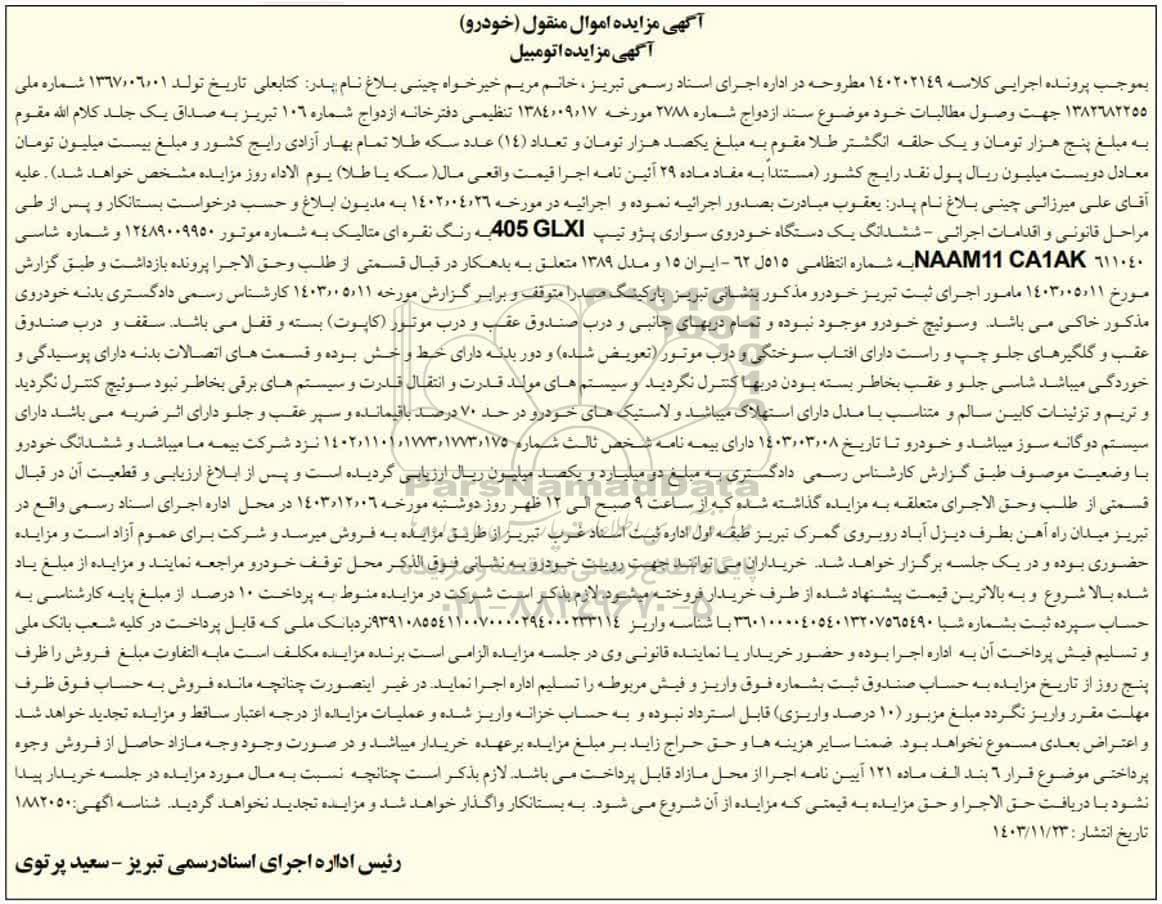 آگهی مزایده اموال منقول (خودرو)
آگهی مزایده اتومبیل
بموجب پرونده اجرایی کلاسه ۱۴۰۲۰۲۱۴۹ مطروحه در اداره اجرای اسناد رسمی تبریز ، خانم مریم خیرخواه چینی بلاغ نام پدر: کتابعلی تاریخ تولد ۱۳۶۷٫۰۶٫۰۱ شماره ملی
۱۳۸۲۶۸۲۲۵۵ جهت وصول مطالبات خود موضوع سند ازدواج شماره ۲۷۸۸ مورخه ۱۳۸۴٫۰۹٫۱۷ تنظیمی دفترخانه ازدواج شماره ۱۰۶ تبریز به صداق یک جلد کلام الله مقوم
به مبلغ پنج هزار تومان و یک حلقه انگشتر طلا مقوم به مبلغ یکصد هزار تومان و تعداد (۱۴) عدد سکه طلا تمام بهار آزادی رایج کشور و مبلغ بیست میلیون تومان
معادل دویست میلیون ریال پول نقد رایج کشور (مستنداً به مفاد ماده ۲۹ آئین نامه اجرا قیمت واقعی مال( سکه یا طلا) یوم الاداء روز مزایده مشخص خواهد شد) . علیه
آقای علی میرزائی چینی بلاغ نام پدر: یعقوب مبادرت بصدور اجرائیه نموده و اجرائیه در مورخه ۱۴۰۲٫۰۴٫۲۶ به مدیون ابلاغ و حسب درخواست بستانکار و پس از طی
مراحل قانونی و اقدامات اجرائی - ششدانگ یک دستگاه خودروی سواری پژو تیپ 405 GLXI به رنگ نقره ای متالیک به شماره موتور ۱۲۴۸۹۰۰۹۹۵۰ و شماره شاسی
NAAM11 CA1AK ۶۱۱۰۴۰ به شماره انتظامی ۵۱۵ل ۶۲ - ایران ۱۵ و مدل ۱۳۸۹ متعلق به بدهکار در قبال قسمتی از طلب وحق الاجرا پرونده بازداشت و طبق گزارش
مورخ ۱۴۰۳٫۰۵٫۱۱ مامور اجرای ثبت تبریز خودرو مذکور بنشانی تبریز پارکینگ صدرا متوقف و برابر گزارش مورخه ۱۴۰۳٫۰۵٫۱۱ کارشناس رسمی دادگستری بدنه خودروی
مذکور خاکی می باشد. وسوئیچ خودرو موجود نبوده و تمام دربهای جانبی و درب صندوق عقب و درب موتور (کاپوت) بسته و قفل می باشد. سقف و درب صندوق
عقب و گلگیرهای جلو چپ و راست دارای افتاب سوختگی و درب موتور (تعویض شده) و دور بدنه دارای خط و خش بوده و قسمت های اتصالات بدنه دارای پوسیدگی و
خوردگی میباشد شاسی جلو و عقب بخاطر بسته بودن دربها کنترل نگردید و سیستم های مولد قدرت و انتقال قدرت و سیستم های برقی بخاطر نبود سوئیچ کنترل نگردید
و تریم و تزئینات کابین سالم و متناسب با مدل دارای استهلاک میباشد و لاستیک های خودرو در حد ۷۰ درصد باقیمانده و سپر عقب و جلو دارای اثر ضربه می باشد دارای
سیستم دوگانه سوز میباشد و خودرو تا تاریخ ۱۴۰۳٫۰۳٫۰۸ دارای بیمه نامه شخص ثالث شماره ۱۴۰۲٫۱۱۰۱٫۱۷۷۳٫۱۷۷۳٫۱۷۵ نزد شرکت بیمه ما میباشد و ششدانگ خودرو
با وضعیت موصوف طبق گزارش کارشناس رسمی دادگستری به مبلغ دو میلیارد و یکصد میلیون ریال ارزیابی گردیده است و پس از ابلاغ ارزیابی و قطعیت آن در قبال
قسمتی از طلب وحق الاجرای متعلقه به مزایده گذاشته شده که از ساعت ۹ صبح الی ۱۲ ظهر روز دوشنبه مورخه ۱۴۰۳٫۱۲٫۰۶ در محل اداره اجرای اسناد رسمی واقع در
تبریز میدان راه آهن بطرف دیزل آباد روبروی گمرک تبریز طبقه اول اداره ثبت اسناد غرب تبریز از طریق مزایده به فروش میرسد و شرکت برای عموم آزاد است و مزایده
حضوری بوده و در یک جلسه برگزار خواهد شد. خریداران می توانند جهت رویت خودرو به نشانی فوق الذکر محل توقف خودرو مراجعه نمایند و مزایده از مبلغ یاد
شده بالا شروع و به بالاترین قیمت پیشنهاد شده از طرف خریدار فروخته میشود لازم بذکر است شرکت در مزایده منوط به پرداخت ۱۰ درصد از مبلغ پایه کارشناسی به
حساب سپرده ثبت بشماره شبا ۳۶۰۱۰۰۰۰۴۰۵۴۰۱۳۲۰۷۵۶۵۴۹۰ با شناسه واریز ۹۳۹۱۰۸۵۵۴۱۱۰۰۷۰۰۰۰۲۹۴۰۰۰۲۳۳۱۱۴نزدبانک ملی که قابل پرداخت در کلیه شعب بانک ملی
و تسلیم فیش پرداخت آن به اداره اجرا بوده و حضور خریدار یا نماینده قانونی وی در جلسه مزایده الزامی است برنده مزایده مکلف است مابه التفاوت مبلغ فروش را ظرف
پنج روز از تاریخ مزایده به حساب صندوق ثبت بشماره فوق واریز و فیش مربوطه را تسلیم اداره اجرا نماید. در غیر اینصورت چنانچه مانده فروش به حساب فوق ظرف
مهلت مقرر واریز نگردد مبلغ مزبور (۱۰ درصد واریزی) قابل استرداد نبوده و به حساب خزانه واریز شده و عملیات مزایده از درجه اعتبار ساقط و مزایده تجدید خواهد شد
و اعتراض بعدی مسموع نخواهد بود. ضمنا سایر هزینه ها و حق حراج زاید بر مبلغ مزایده برعهده خریدار میباشد و در صورت وجود وجه مازاد حاصل از فروش وجوه
پرداختی موضوع قرار ۶ بند الف ماده ۱۲۱ آیین نامه اجرا از محل مازاد قابل پرداخت می باشد. لازم بذکر است چنانچه نسبت به مال مورد مزایده در جلسه خریدار پیدا
نشود با دریافت حق الاجرا و حق مزایده به قیمتی که مزایده از آن شروع می شود. به بستانکار واگذار خواهد شد و مزایده تجدید نخواهد گردید. شناسه اگهی:۱۸۸۲۰۵۰
تاریخ انتشار : ۱۴۰۳/۱۱/۲۳
رئیس اداره اجرای اسنادرسمی تبریز - سعید پرتوی
ParsNamadData
پایگاه اطلاع رسانی مناقصه و مزایده
۰۲۱-۸۸۳۴۹۶۷۰-۵